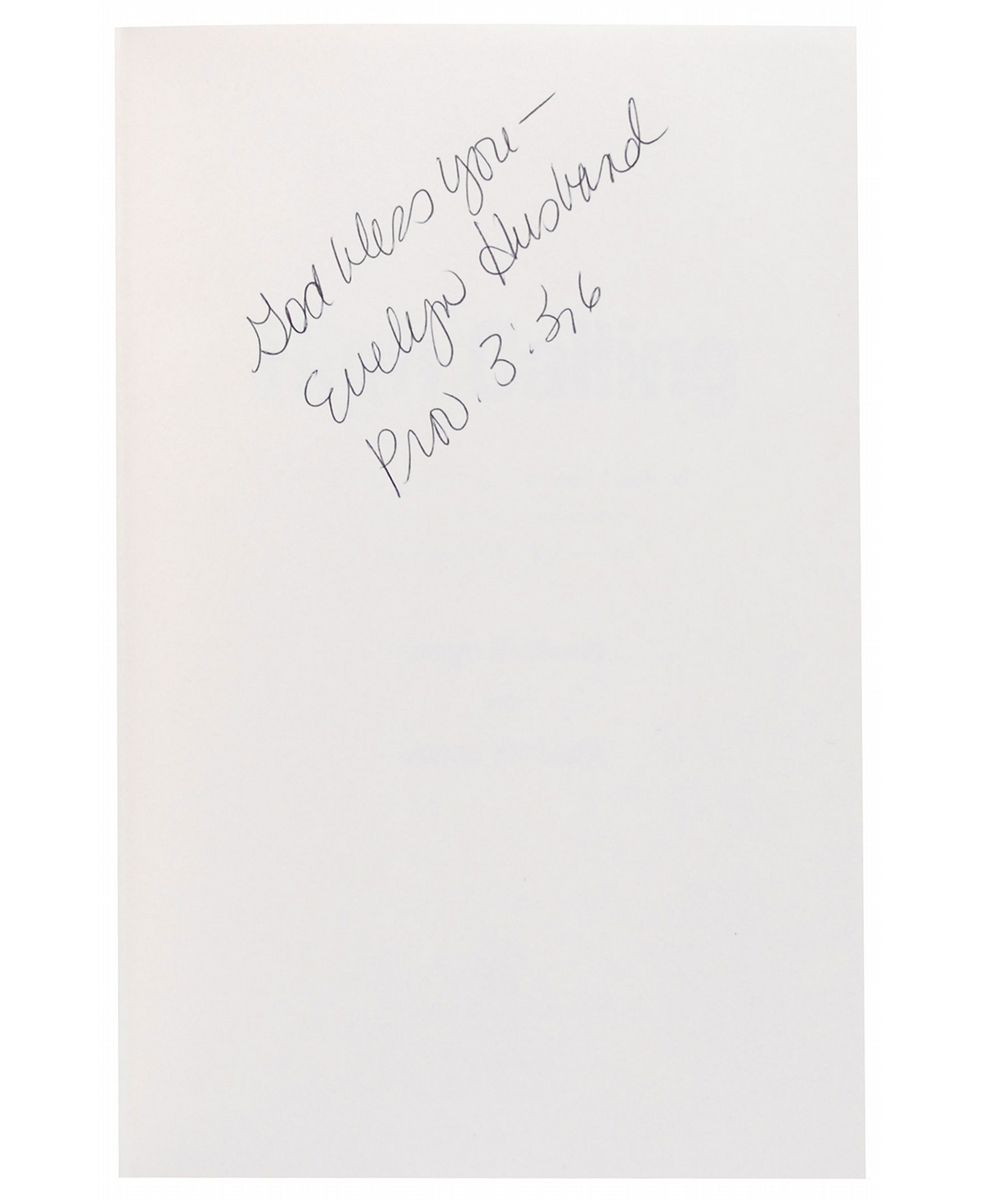 God bless you—
Evelyn Husband
Prov. 3:5,6